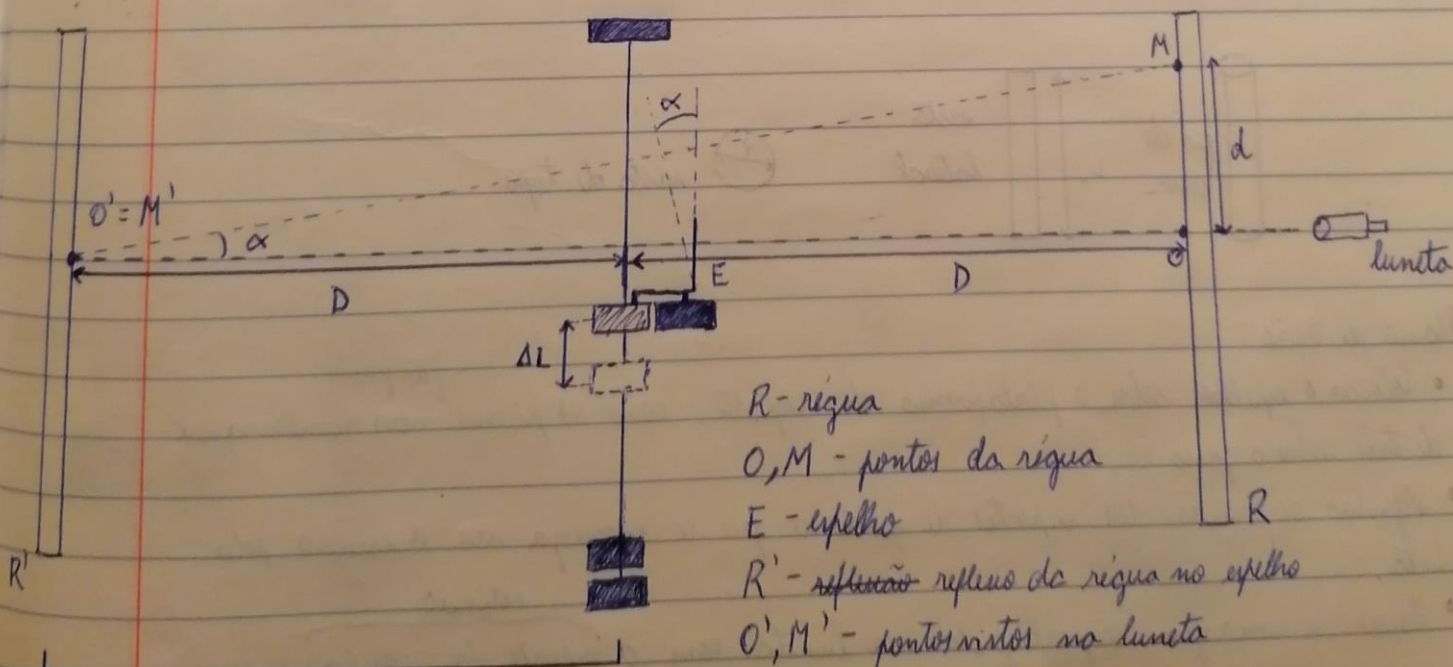 M
α
d
O' = M'
α
O
luneta
D
E
D
ΔL
R - régua
O, M - pontos da régua
E - espelho
R
R' - reflexão reflexo da régua no espelho
R'
O', M' - pontos vistos na luneta